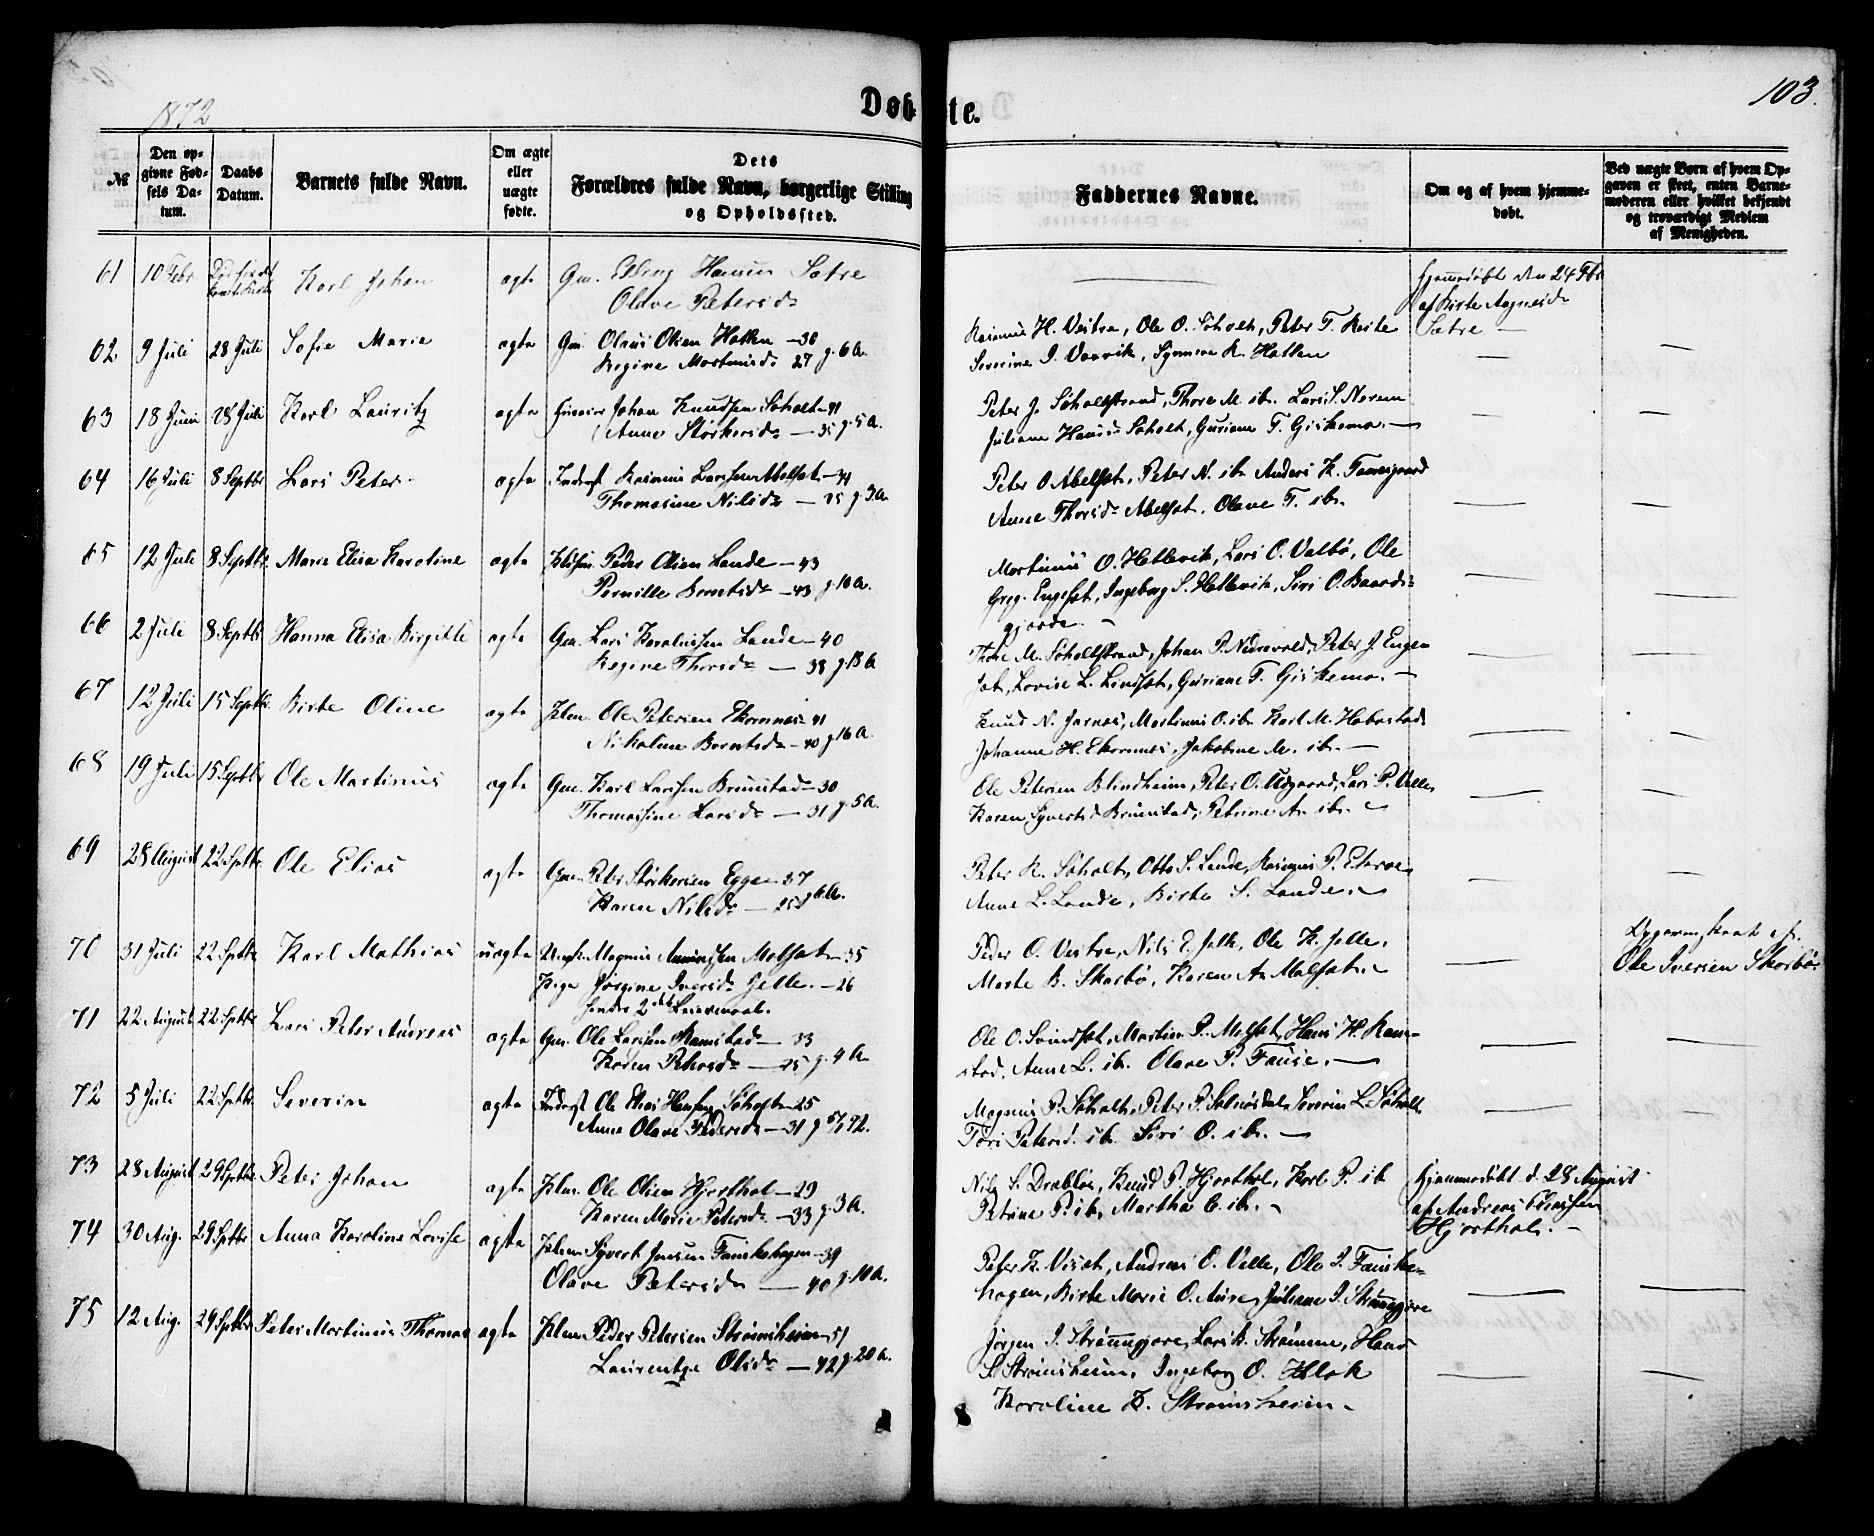 1872
Døb-
te.
103.
№
Den op-
givne Fød-
sels Da-
tum.
Daabs
Datum.
Barnets fulde Navn.
Om ægte
eller
uægte
fødte.
Dets
Forældres fulde Navn, borgerlige Stilling
og Opholdssted.
Faddernes Navne.
Om og af hvem hjemme-
døbt.
Ved uægte Børn af hvem Op-
gaven er skeet, enten Barne-
moderen eller hvilket bekjendt
og troværdigt Medlem
af Menigheden.
61 10 Febr Karl Johan ægte Gm. Elling Hansen Sætre
Olave Petersd.
Hjemmedøbt den 24 Fbr
af Birte Aagesd
Sætre —
62 9 Juli 28 Juli Sofie Marie ægte Gm. Olaus Olsen Hatlen — 30
Regine Mortensd. 27 g. 6 A.
Rasmus H. Vestre, Ole O. Søholt, Peter T.
Severine I. Vaarvik, Synneve K. Hatlen
63 18 Juni 28 Juli Karl Lauritz ægte Johan Knudsen Søholt — 41
Anne Størkersd. — 35 g. 5 A.
Peter J. Søholtstrand, Thore M. ib. Lars S. Norem
Juliane Hansd. Søholt, Guriane T. Giskemo. —
64 16 Juli 8 Septbr Lars Peter ægte Inderst Rasmus Larssen Abelset — 34
Thomasine Nilsd. — 25 g. 3 A
Peter O Abelset, Peter N. ib. Anders K.
Anne Thorsd. Abelset, Olave T. ib.
65 12 Juli 8 Septbr. Marie Elisa Karoline ægte Peder Olsen Lande — 43
Pernille Berntsd. — 43 g. 10 A.
Martinus O. Hetlevik, Lars O. Valbø, Ole
Greg. Engeset, Ingeborg S. Hetlevik, Siri O. Baards-
gjærde. —
66 2 Juli 8 Septbr Hanna Elisa Birgitte ægte Gm. Lars Karolusen Lande — 40
Regine Thorsd. — 38 g. 13 A
Thore M. Søholtstrand, Johan P. Nedrevold, Peter J. Enge-
set, Lovise L. Lindset, Guriane T. Giskemo. —
67 12 Juli 15 Septbr. Birte Oline ægte Jelm. Ole Petersen Ekornnes 41
Nikoline Berntsd. — 40 g. 16 A.
Knud N. Jarnes, Martinus O. ib. Karl M. Habostad
Johanne H. Ekornnes, Jakobine M. ib. —
68 19 Juli 15 Septbr Ole Martinus ægte Gm. Karl Larssen Brunstad — 30
Thomassine Larsd. — 31 g. 5 A.
Ole Petersen Blindheim, Peter O. Urgaard, Lars P. Velle,
Karen Syvertsd Brunstad, Petrine A. ib. —
69 28 August 22 Septbr Ole Elias ægte Gm. Peter Størkersen Egge — 37
Karen Nilsd. — 25 g 6 A.
Peter K. Søholt, Otto S. Lande, Rasmus P.
Anne L. Lande, Birte S. Lande. —
70 31 Juli 22 Septbr Karl Mathias uægte Ungk. Magnus Amundsen Melset — 35
Pige Jørgine Iversd. Jelle. — 26
hendes 2det Leiermaal.
Peder O. Vestre, Nils E. Jelle, Ole K. Jelle,
Marte B. Skarbø, Karen A. Melset. —
Ole Iversen Skarbø
71 22 August 22 Septbr Lars Peter Andreas ægte Gm. Ole Larssen Ramstad — 33
Karen Petersd. — 25 g. 4 A.
Ole O. Svindset, Martin P. Melset, Hans H. Ram-
stad, Anne L. ib. Olave P. Fause. —
72 5 Juli 22 Septbr Severin ægte Inderst Ole Elias Hansen Søholt — 25
Anne Olave Pedersd. — 31 g
Magnus P. Søholt, Peter P. Solnørdal, Severin L. Søholt
Petersd. ib. Siri O. ib. —
73 28 August 29 Septbr Peter Johan ægte Jelm. Ole Olsen Hjorthol — 29
Karen Marie Petersd. — 33 g. 3 A.
Nils S. Drabløs, Knud P. Hjorthol, Karl P. ib
Petrine P. ib, Martha C. ib. —
Hjemmedøbt d. 28 August
af Andreas
Hjorthol. —
74 30 Aug. 29 Septbr Anna Karoline Lovise ægte Jelm Syvert Jensen Fauskehagen — 39
Olave Petersd. — 40 g. 10 A.
Peter K. Viset, Andreas O. Velle, Ole I. Fauske-
hagen, Birte Marie O. Aure, Juliane I. Strømgjære
75 12 Aug. 29 Septbr Peter Martinus Thomas ægte Jelm Peder Petersen Strømsheim — 51
Laurentze Olsd. — 42 g. 20 A.
Jørgen I. Strømgjære, Lars B. Strømme, Hans
S. Strømsheim, Ingeborg O. Klok
Karoline K. Strømsheim. —